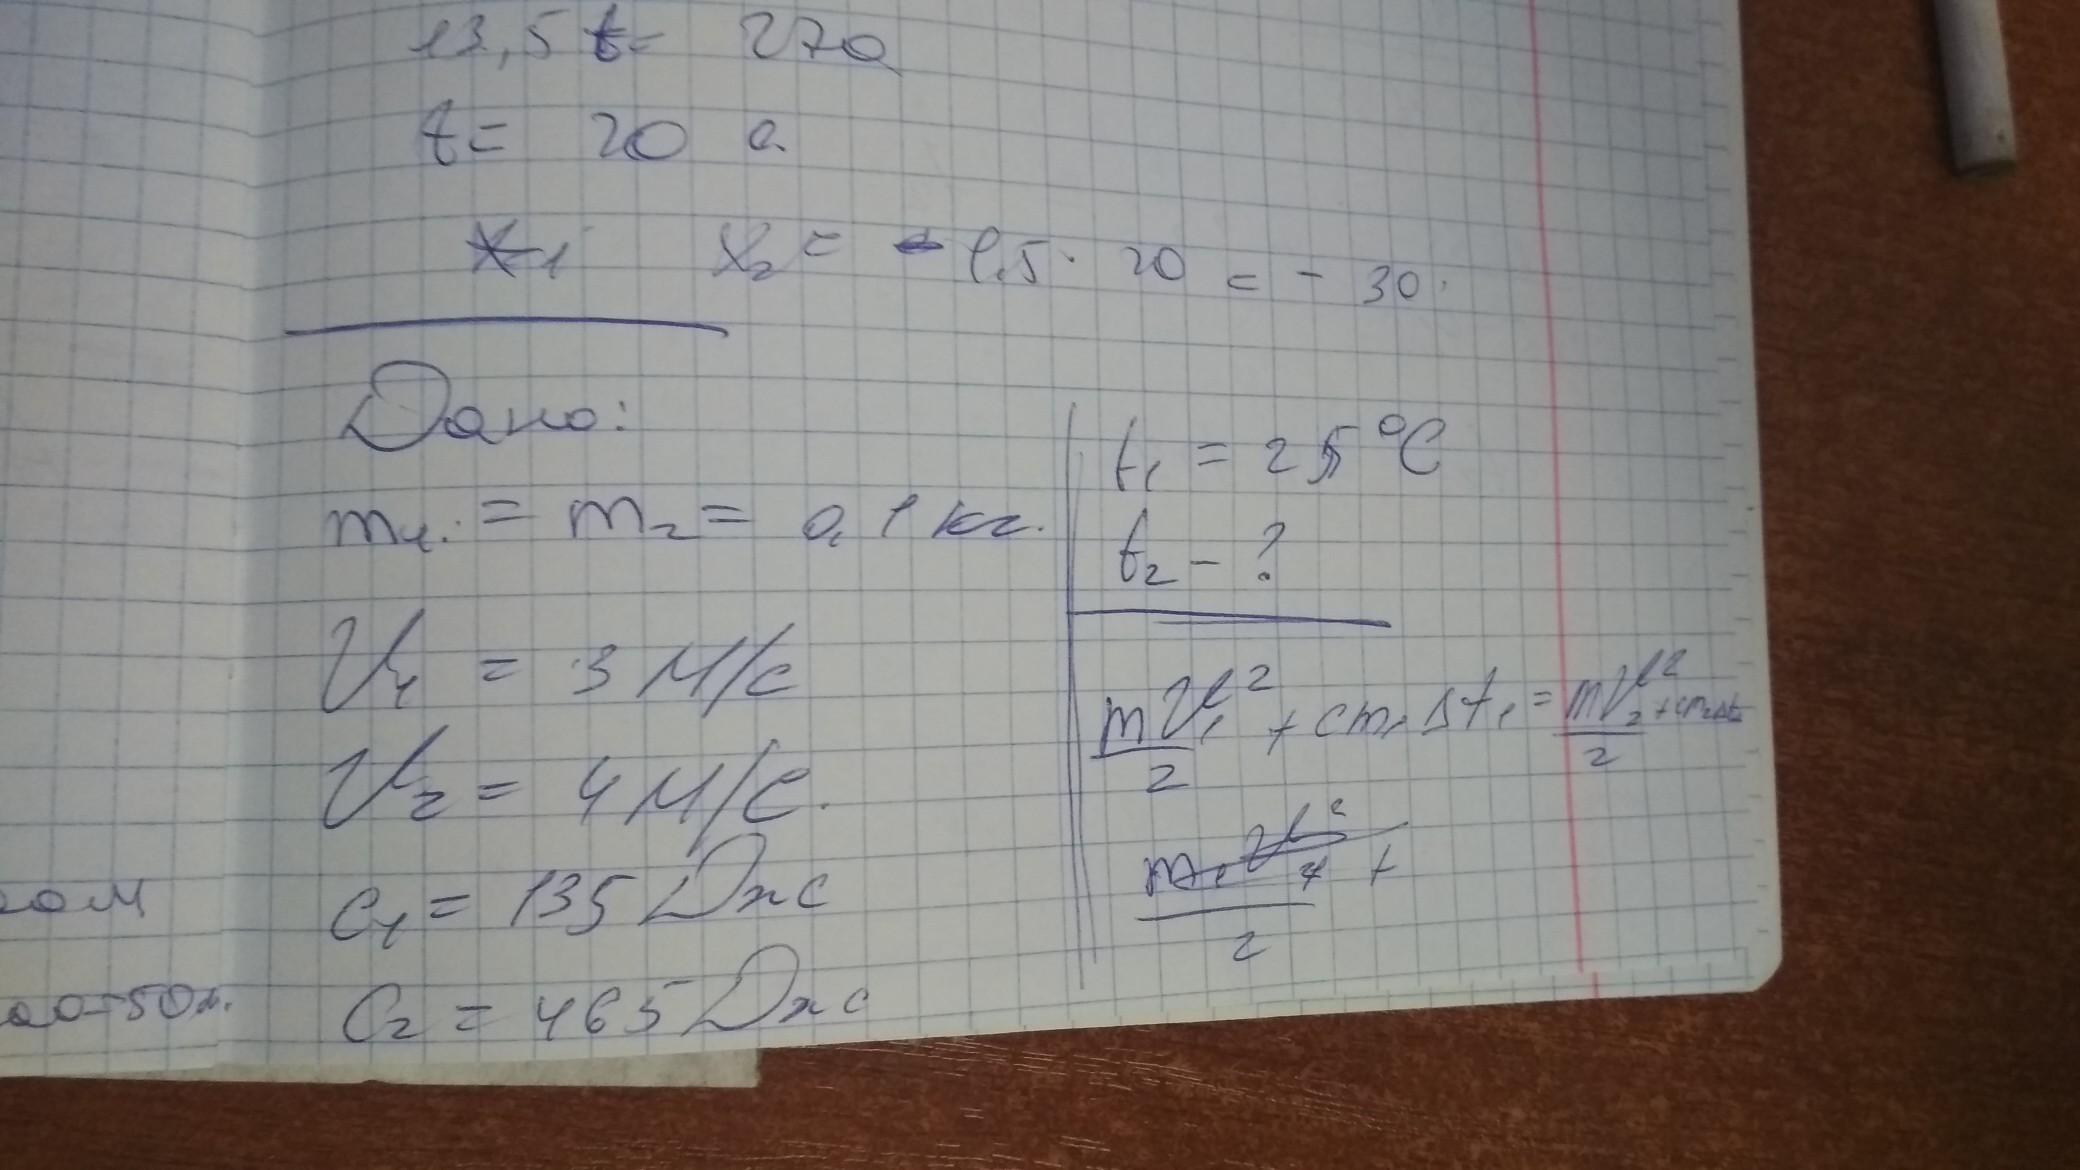 13,5 t = 270
t = 20 с.
x₂ = - 1,5 · 20 = - 30.
Дано:
m₁ = m₂ = 0,1 кг.
V₁ = 3 м/с
V₂ = 4 м/с.
C₁ = 135 Дж с
C₂ = 465 Дж с
t₁ = 25 °C
t₂ - ?
mV₁²/2 + cm₁ Δt₁ = mV₂²/2 + cm₂Δt₂
ом
00-50м.